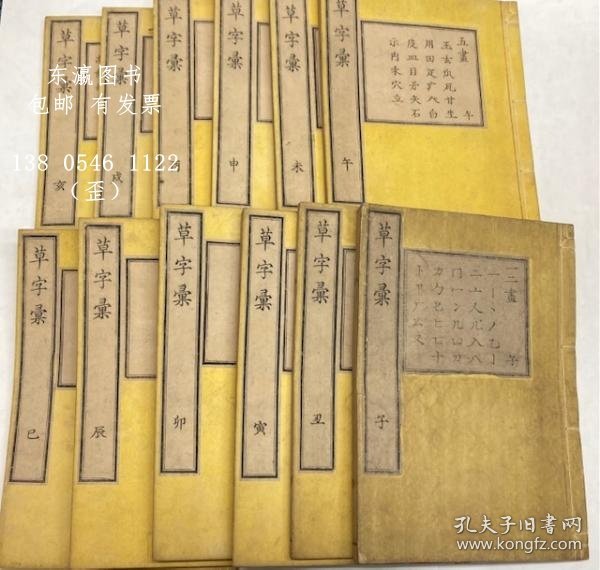 東瀛图书
包邮 有发票
138 0546 1122
（歪）
草字彙
亥
草字彙
戌
草字彙
草字彙
申
草字彙
未
草字彙
午
五畫
玉玄瓜瓦甘生
用田疋疒癶白
皮皿目矛矢石
示禸禾穴立
午
草字彙
巳
草字彙
辰
草字彙
卯
草字彙
寅
草字彙
丑
草字彙
子
一二畫
一丨丶丿乙亅
二亠人儿入八
冂冖冫几凵刀
力勹匕匚匸十
卜卩厂厶又
孔夫子旧书网
www.kongfz.com